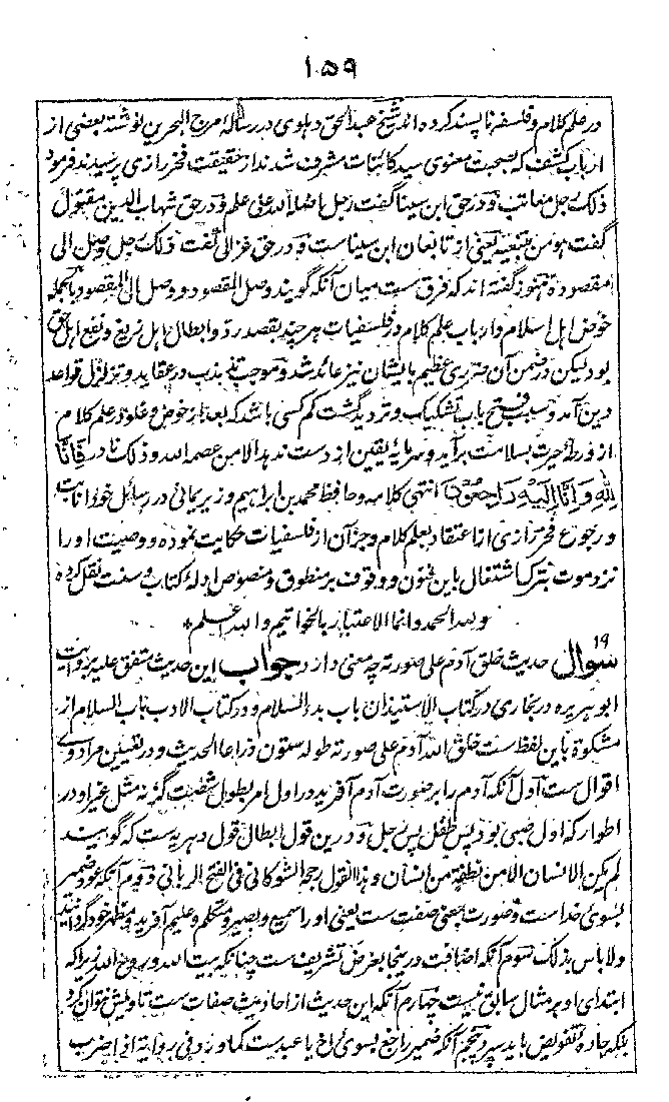 ۱۰۵۹
در علم کلام و فلسفه ناپسند کرده اند شیخ عبدالحق دهلوی در رساله مرج البحرین نوشته بعضی از
ارباب کشف که بصحبت معنوی سید کائنات مشرف شدند از حقیقت فخر رازی پرسیدند فرمود
ذلک رجل معاتب و در حق ابن سینا گفت رجل اضله الله علی علم و در حق شهاب الدین مقتول
گفت هو من متبعیه یعنی از تابعان ابن سیناست و در حق غزالی گفت ذلک رجل وصل الی
مقصوده گفته اند که فرق ست میان آنکه گویند وصل المقصود و وصل الی المقصود بالجمله
خوض اهل اسلام و ارباب علم کلام در فلسفیات هر چند بقصد رد و ابطال اهل زیغ و نفع اهل حق
بود لیکن در ضمن آن ضرری عظیم بایشان نیز عائد شد و موجب تذبذب در عقاید و تزلزل قواعد
دین آمد و سبب فتح باب تشکیک و تردید گشت کم کسی باشد که بعد از خوض و غلو در علم کلام
از ورطهٔ حیرت بسلامت برآید و سرمایهٔ یقین از دست ندهد الا من عصمه الله و ذلک نادر فانا
لله و انا الیه راجعون انتهی کلامه و حافظ محمد بن ابراهیم وزیر یمانی در رسائل خود انابت
و رجوع فخر رازی از اعتقاد بعلم کلام و جز آن از فلسفیات حکایت نموده و وصیت او را
نزد موت بترک اشتغال باین فنون و وقوف بر منطوق و منصوص ادلهٔ کتاب و سنت نقل کرده
ولله الحمد وانما الاعتبار بالخواتیم والله اعلم
۱۹ سوال حدیث خلق آدم علی صورته چه معنی دارد جواب این حدیث متفق علیه بروایت
ابو هریره در بخاری در کتاب الاستیذان باب بدء السلام و در کتاب الادب باب السلام از
مشکوة باین لفظ ست خلق الله آدم علی صورته طوله ستون ذراعا الحدیث و در تعیین مراد وی
اقوال ست اول آنکه آدم را بر صورت آدم آفرید در اول امر بطول شصت گز نه مثل غیر او در
اطوار که اول صبی بود پس طفل پس رجل و درین قول ابطال قول دهریه ست که گویند
لم یکن الانسان الا من نطفة من انسان و هذا القول رجحه الشوکانی فی الفتح الربانی دوم آنکه عود ضمیر
بسوئ خدا ست و صورت بمعنی صفت ست یعنی او را سمیع و بصیر و متکلم و علیم آفرید و مظهر خود گردانید
ولا باس بذلک سوم آنکه اضافت درینجا بغرض تشریف ست چنانکه بیت الله و روح الله زیرا که
ابتدای او بر مثال سابق نیست چهارم آنکه این حدیث از احادیث صفات ست تاویلش نتوان کرد
بلکه جادهٔ تفویض باید سپرد پنجم آنکه ضمیر راجع بسوئ اخ یا عبد ست کما ورد فی روایة اذا ضرب